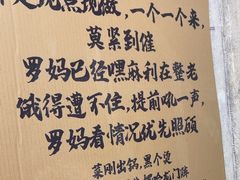 是现点现做，一个一个来，
莫紧到催
罗妈已经嘿麻利在整老
饿得遭不住，提前吼一声，
罗妈看情况优先照顾
菜刚出锅，黑个烫